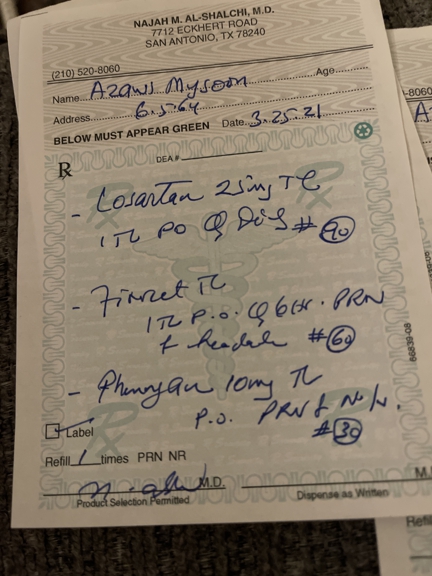 NAJAH M. AL-SHALCHI, M.D.
7712 ECKHERT ROAD
SAN ANTONIO, TX 78240
(210) 520-8060
Name Azawi Mysoon Age
Address 6.5.64 Date 3.25.21
BELOW MUST APPEAR GREEN
DEA#
Rx
- Losartan 25mg
PO #90
- Fioricet
P.O. q 6H. PRN
headache #60
- Phenergan 10mg
P.O. PRN N/V.
#30
Label
Refill 1 times PRN NR
M.D.
Product Selection Permitted
Dispense as Written
66839-08
-8060
39-08
Refi